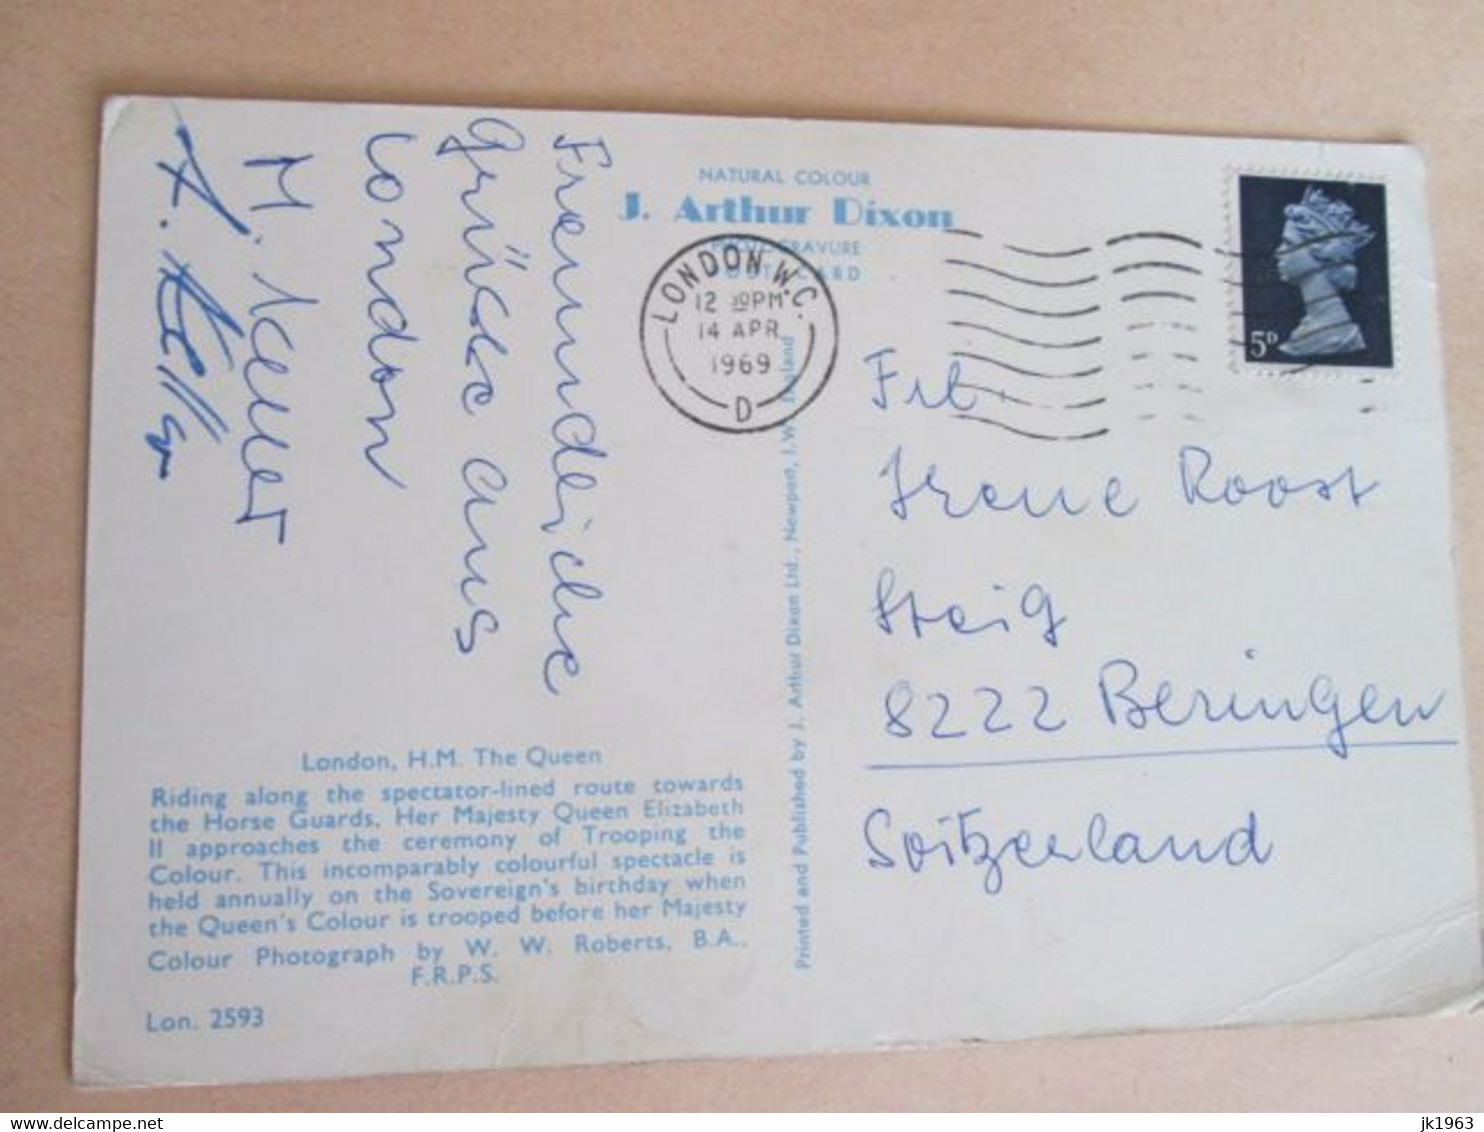 Freundliche
Grüsse aus
London
M. Keller
A. Keller
NATURAL COLOUR
J. Arthur Dixon
GRAVURE
CARD
LONDON. W.C.
12 30PM
14 APR
1969
D
5D
Frl.
Irene Roost
Steig
8222 Beringen
Soitzerland
Printed and Published by J. Arthur Dixon Ltd., Newport, I.W.
London, H.M. The Queen
Riding along the spectator-lined route towards
the Horse Guards, Her Majesty Queen Elizabeth
II approaches the ceremony of Trooping the
Colour. This incomparably colourful spectacle is
held annually on the Sovereign's birthday when
the Queen's Colour is trooped before her Majesty
Colour Photograph by W. W. Roberts, B.A.,
F.R.P.S.
Lon. 2593
jk1963